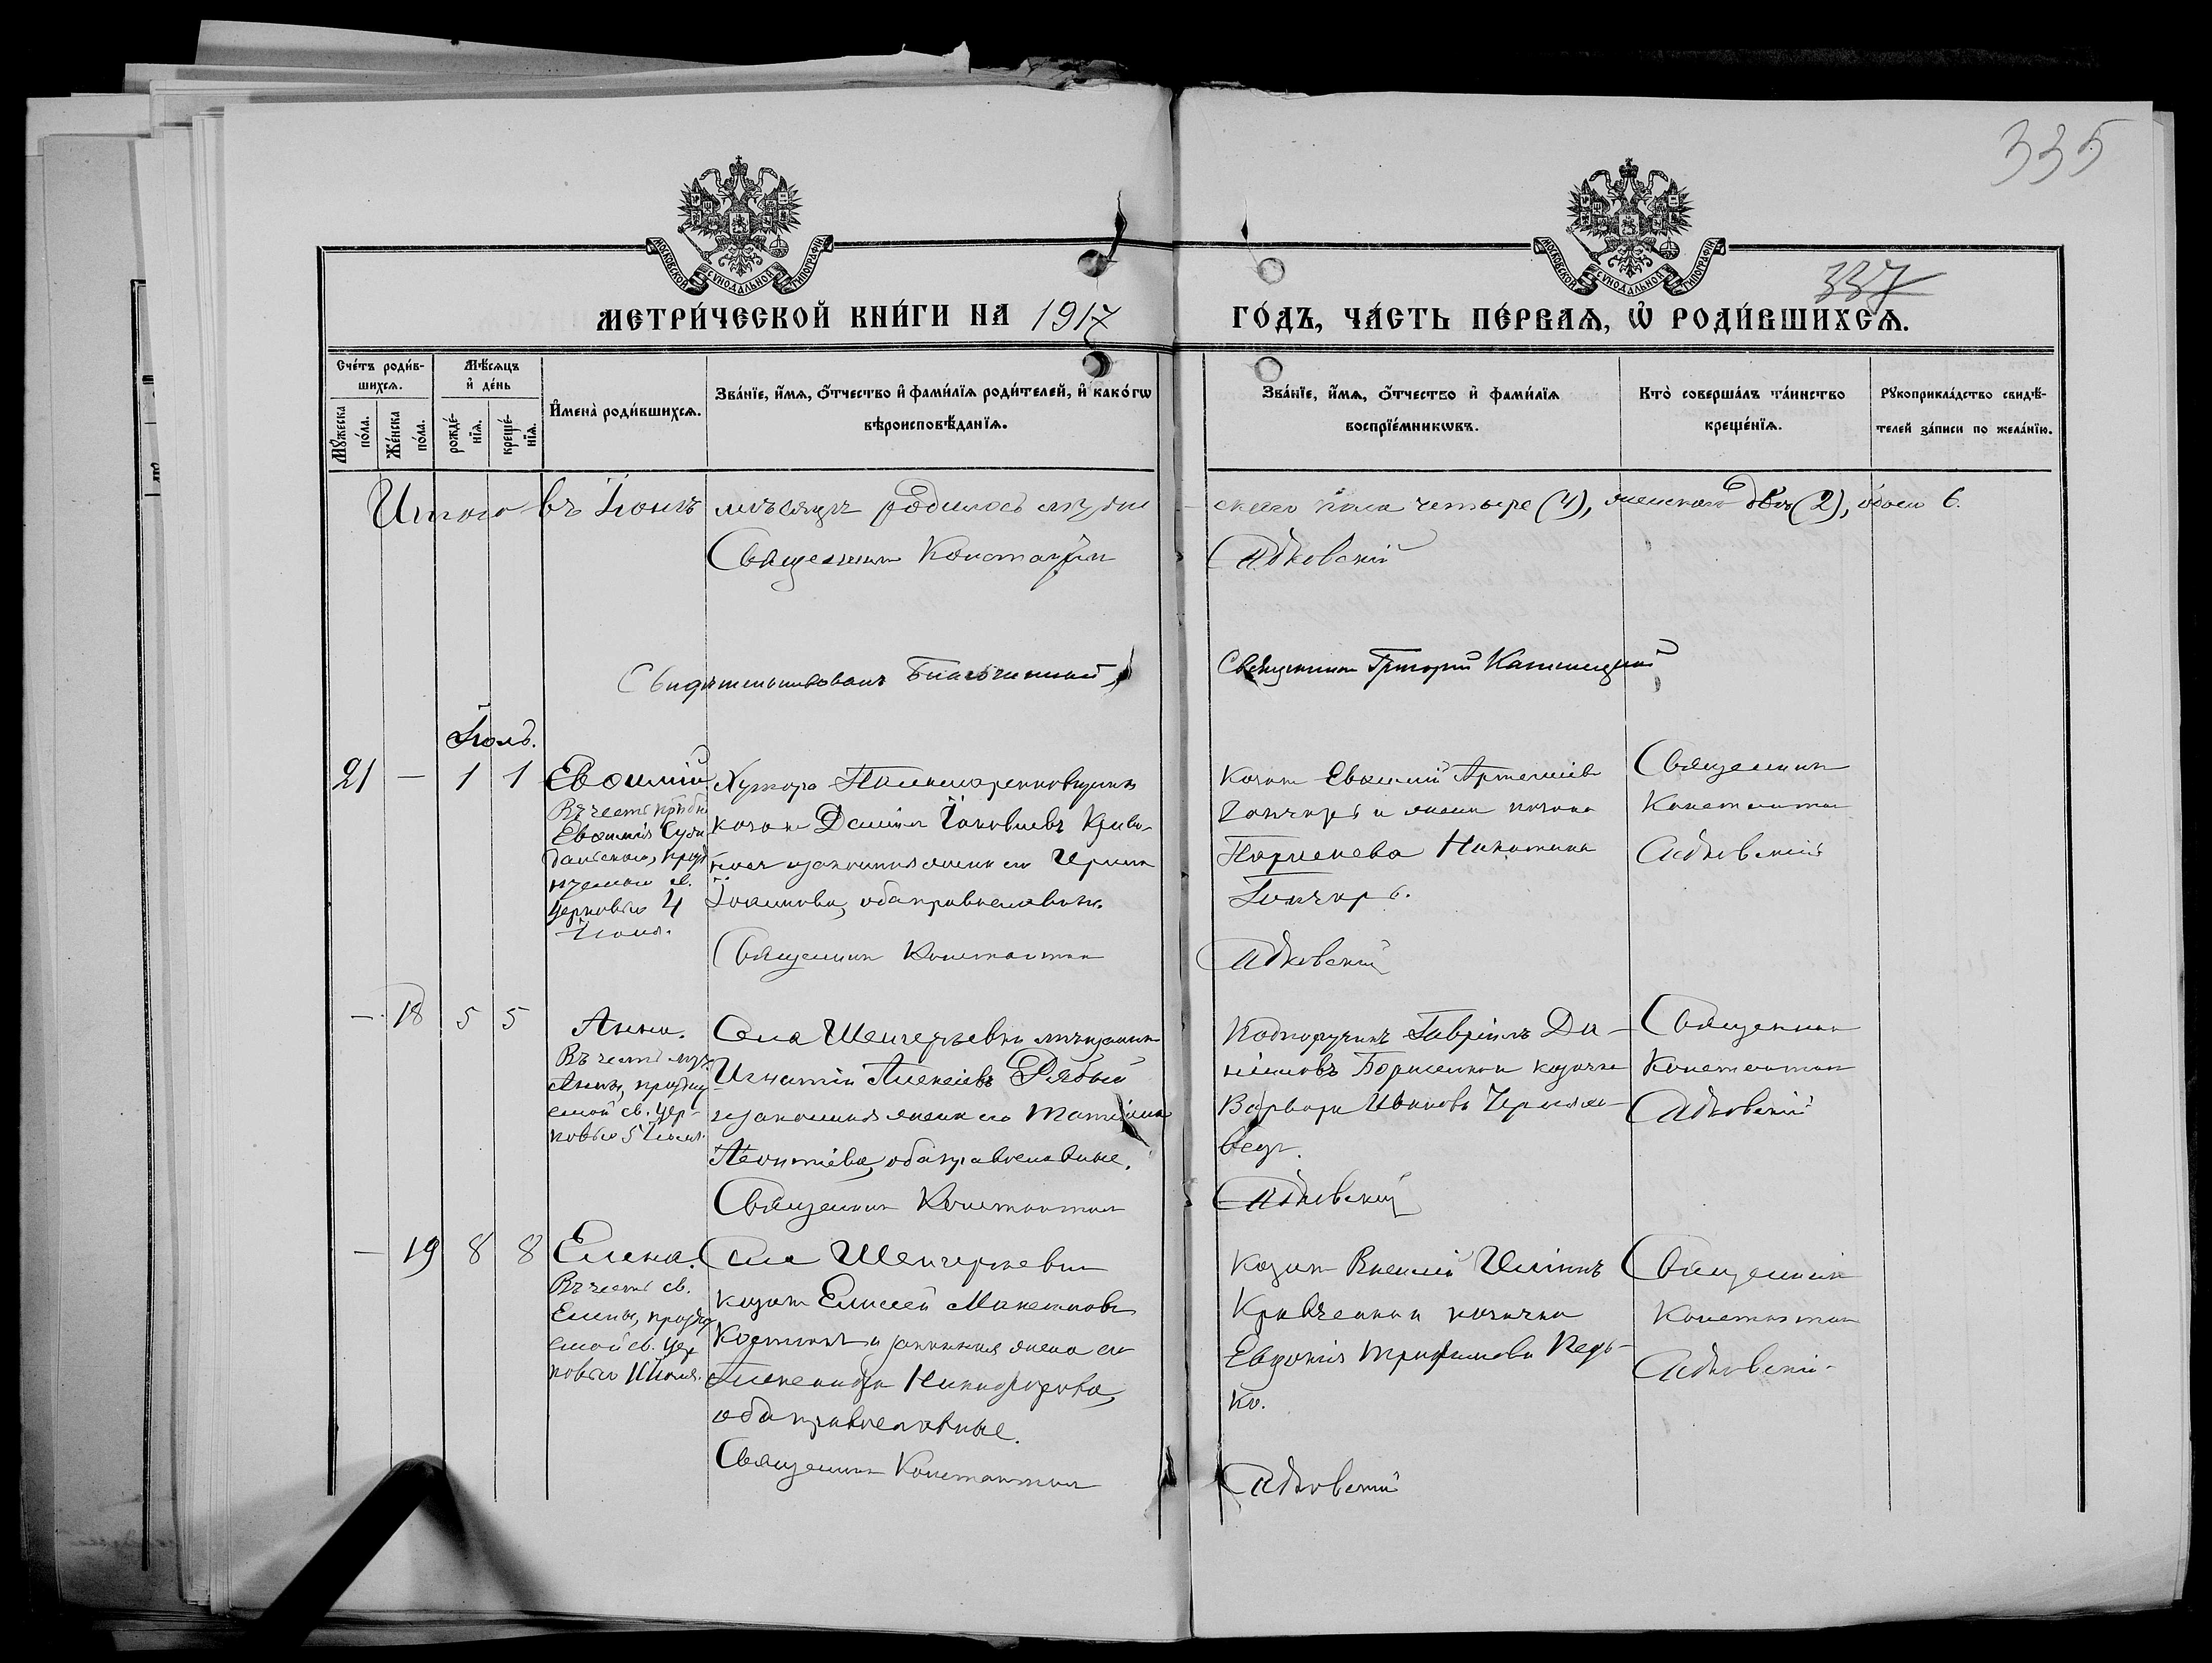 335
337
МОСКОВСКОЙ СѴНОДАЛЬНОЙ ТИПОГРАФІИ
МОСКОВСКОЙ СѴНОДАЛЬНОЙ ТИПОГРАФІИ
МЕТРИ́ЧЕСКОЙ КНИ́ГИ НА 1917 ГО́ДЪ, ЧА́СТЬ ПЕ́РВАѦ, Ѿ РОДИ́ВШИХСѦ.
Сче́тъ роди́в-
шихсѧ.
Мѣ́сѧцъ
и҆ де́нь
Мꙋ́жеска по́ла.
Же́нска по́ла.
рожде́-
нїѧ.
креще́-
нїѧ.
И҆мена̀ роди́вшихсѧ.
Зва́нїе, и҆́мѧ, ѻ҆́тчество и҆ фами́лїѧ роди́телей, и҆ како́гѡ
вѣроисповѣ́данїѧ.
Зва́нїе, и҆́мѧ, ѻ҆́тчество и҆ фами́лїѧ
воспрїе́мникѡвъ.
Кто̀ соверша́лъ та́инство
креще́нїѧ.
Рꙋкоприкла́дство свидѣ́-
телей за́писи по жела́нїю.
Итого въ Іюнѣ мѣсяцѣ родилось муж-
скаго пола четыре (4), женскаго двѣ (2), обоего 6.
Священникъ Константин Адковскій
Свидѣтельствовалъ Благочинный, Священникъ Григорій
Іюль.
21 — 1 1 Евѳимій.
Въ честь
Евѳимія Сузд
дальскаго, празд
нуемаго св.
Церковью 4
Іюля.
Хутора
козакъ Даніилъ Іаковлевъ Криво-
носъ и законная жена его Ирина
Іоаннова, оба православные.
Священникъ Константин
козакъ Евѳимій Артеміевъ
Гончаръ и жена козака
Никитина
Гончаръ.
Адковскій
Священник
Константин
Адковскій
— 18 5 5 Анна.
Въ честь
Анны, праздну
емой св. Цер-
ковью 5 Іюля.
Села Шенгерьевки мѣщанинъ
Игнатій Алексіевъ Рябый
и законная жена его Татіана
Леонтіева, оба православные.
Священник Константин
Подпоручикъ Гавріилъ Да-
ніиловъ Борисенко и козачка
Варвара Иванова
Адковскій
Священник
Константин
Адковскій
— 19 8 8 Елена.
Въ честь св.
Елены, празднуе
емой св. Цер
ковью 11 Іюля.
Села Шенгерьевки
козакъ Елисей
и законная жена его
Александра Никифорова,
оба православные.
Священник Константин
козакъ Василій
Кравченко и козачка
Евдокія Трифимова Редь-
ко.
Адковскій
Священник
Константин
Адковскій